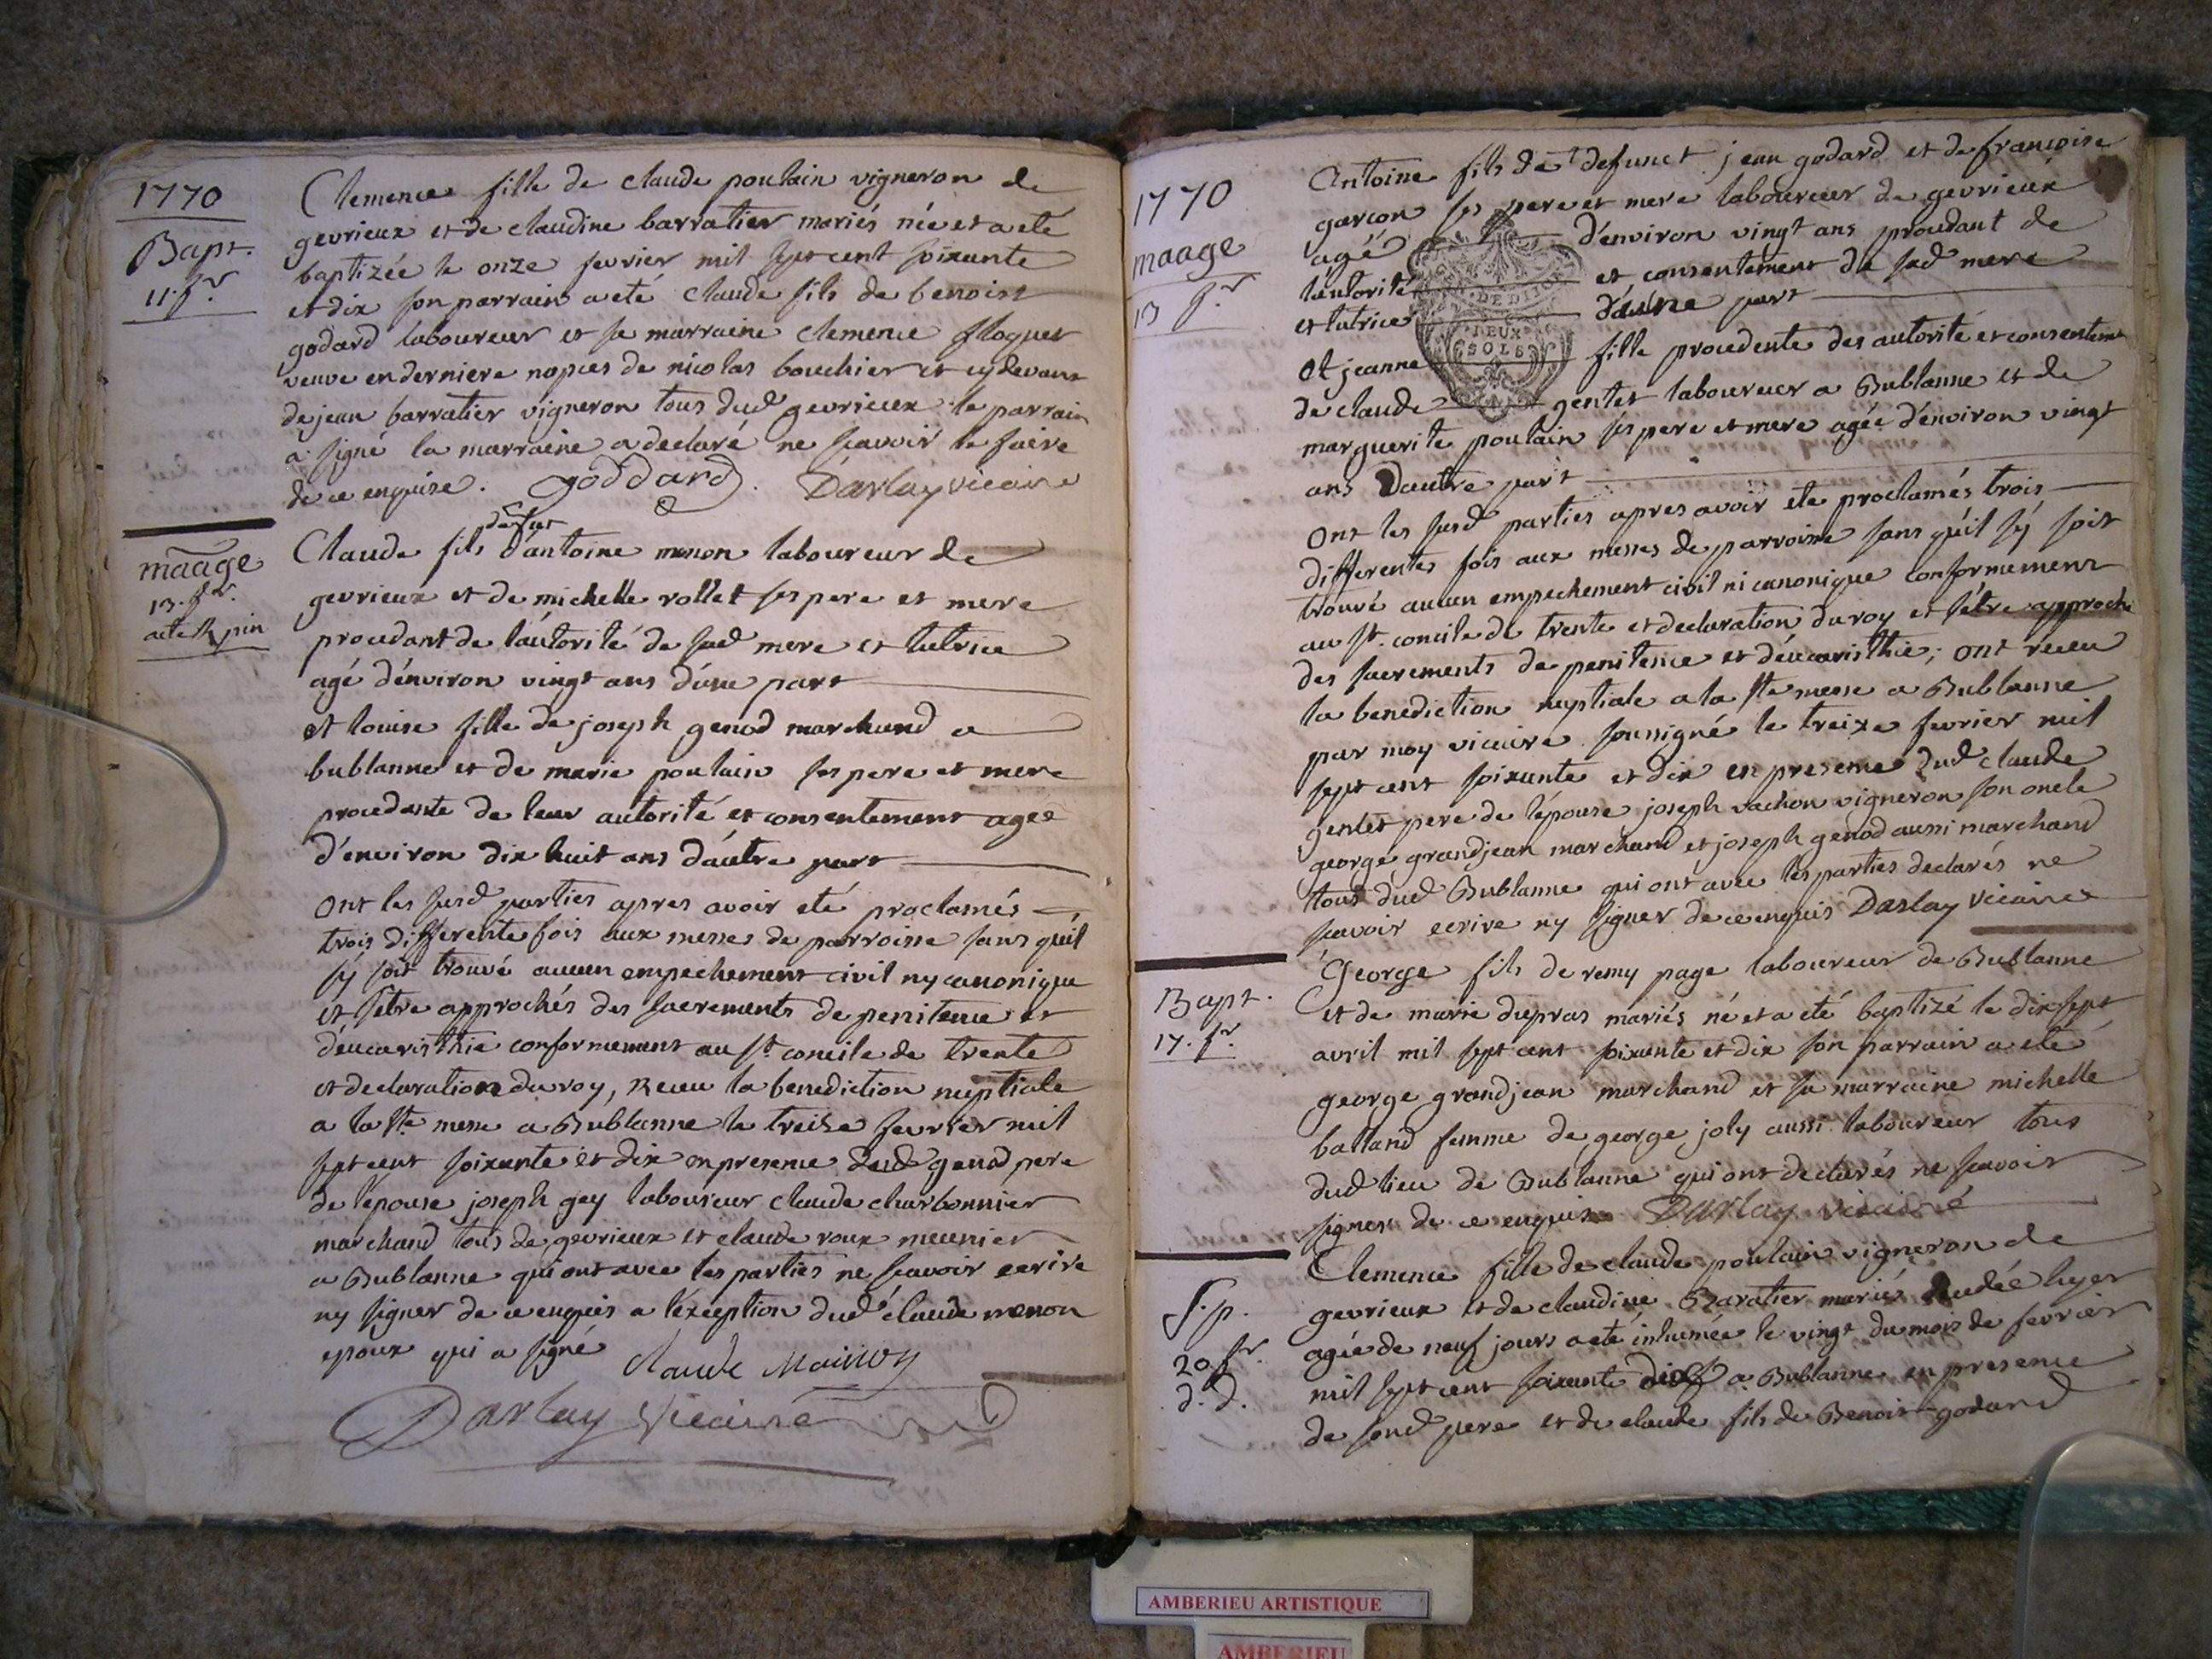 1770
Bapt.
11. fr.
Clemence fille de claude poulain vigneron de
gevrieux et de claudine barratier mariés née et a eté
baptizée le onze fevrier mil sept cent soixante
et dix son parrain a eté claude fils de benoist
godard laboureur et sa marraine clemence floquet
veuve en derniere nopces de nicolas bouchier et cydevant
de jean barratier vigneron tous dud gevrieux le parrain
a signé la marraine a declaré ne scavoir le faire
de ce enquise. goddard. Darlay vicaire
maage
13. fr.
defunt
Claude fils d'antoine monon laboureur de
gevrieux et de michelle rollet ses pere et mere
procedant de l'autorité de sad mere et tutrice
agé d'environ vingt ans d'une part
et louise fille de joseph genod marchand a
bublanne et de marie poulain ses pere et mere
procedante de leur autorité et consentement agée
d'environ dix huit ans d'autre part
ont les susd parties apres avoir eté proclamés
trois differente fois aux messes de parroisse sans qu'il
s'y soit trouvé aucun empechement civil ny canonique
et s'etre approchés des sacrements de penitence et
d'eucaristhie conformement au st. concile de trente
et declaration du roy, Receu la benediction nuptiale
a la ste messe a Bublanne le treise fevrier mil
sept cent soixante et dix en presence dud genod pere
de l'epouse joseph gey laboureur claude charbonnier
marchand tous de gevrieux et claude roux meunier
a Bublanne qui ont avec les parties ne scavoir ecrire
ny signer de ce enquis a l'exception dud claude monon
epoux qui a signé claude
Darlay vicaire
1770
maage
13 fr.
Antoine fils de defunct jean godard et de francoise
garcon ses pere et mere laboureur de gevrieux
agé d'environ vingt ans procedant de
l'autorité et consentement de sad mere
et tutrice d'une part
DE DIJON
DEUX
SOLS
et jeanne fille procedente des autorité et consentement
de claude gentet laboureur a Bublanne et de
marguerite poulain ses pere et mere agée d'environ vingt
ans d'autre part
ont les susd parties apres avoir ete proclamés trois
differentes fois aux messes de parroisse sans qu'il s'y soit
trouvé aucun empechement civil ni canonique conformement
au st. concile de trente et declaration du roy et s'etre approché
des sacrements de penitence et d'eucaristhie; ont receu
la benediction nuptiale a la ste messe a Bublanne
par moy vicaire soussigné le treize fevrier mil
sept cent soixante et dix en presence dud claude
gentet pere de l'epouse joseph vachon vigneron son oncle
george grandjean marchand et joseph genod aussi marchand
tous dud Bublanne qui ont avec les parties declarés ne
scavoir ecrire ny signer de ce enquis Darlay vicaire
Bapt.
17. fr.
George fils de remy page laboureur de Bublanne
et de marie dupras mariés né et a eté baptizé le dix sept
avril mil sept cent soixante et dix son parrain a eté
george grandjean marchand et sa marraine michelle
balland femme de george joly aussi laboureur tous
dud lieu de Bublanne qui ont declarés ne scavoir
signer de ce enquis Darlay vicaire
S.p.
20 fr.
d.d.
Clemence fille de claude poulain vigneron de
gevrieux et de claudine Baratier mariés decedée hyer
agée de neuf jours a eté inhumée le vingt du mois de fevrier
mil sept cent soixante dix a Bublanne en presence
de sond pere et de claude fils de Benoist godard
AMBERIEU ARTISTIQUE
AMBERIEU